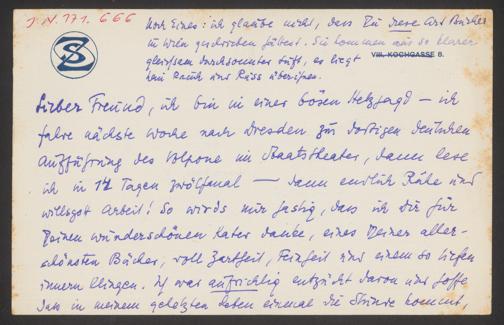 J.N. 171.666
Noch Eines: ich glaube nicht, dass Du diese Art Bücher
in Wien geschrieben hättest. Sie kommen aus so klarer
gleichsam durchsonnter Luft, es liegt
kein Rauch und Russ überihnen.
SZ
VIII. KOCHGASSE 8.
Lieber Freund, ich bin in einer bösen Hetzjagd – ich
fahre nächste Woche nach Dresden zur dortigen deutschen
Aufführung des Volpone im Staatstheater, dann lese
ich in 14 Tagen zwölfmal – dann endlich Ruhe und
willsgott Arbeit! So wirds nur hastig, dass ich Dir für
Deinen wunderschönen Kater danke, eines Deiner aller-
schönsten Bücher, voll Zartheit, Feinheit und einem so tiefen
innern Klingen. Ich war aufrichtig entzückt davon und hoffe
dass in meinem gehetzten Leben einmal die Stunde kommt,